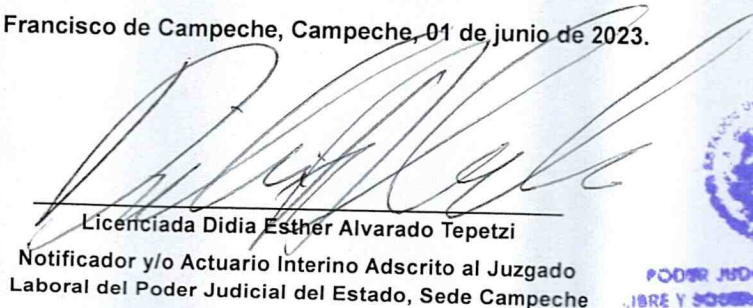 Francisco de Campeche, Campeche, 01 de junio de 2023.
Licenciada Didia Esther Alvarado Tepetzi
Notificador y/o Actuario Interino Adscrito al Juzgado
Laboral del Poder Judicial del Estado, Sede Campeche
PODER JUD
LIBRE Y